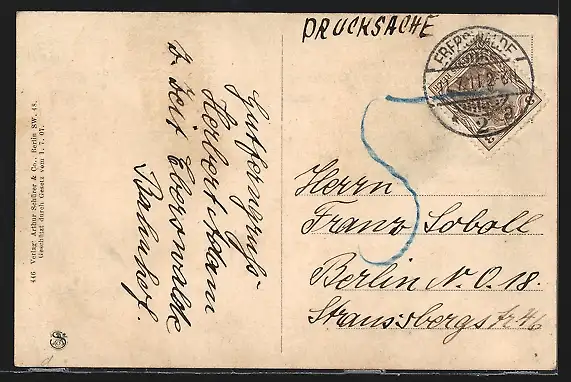 DRUCKSACHE
EBERSWALDE
2
Gutferngruß
Herbert Adam
z. Zeit Eberswalde
Bahnhof.
Herrn
Franz Soboll
Berlin N.O. 18.
Straussbergstr 46
446 Verlag: Arthur Schürer & Co., Berlin SW. 48.
Geschützt durch Gesetz vom 1. 7. 07.
5